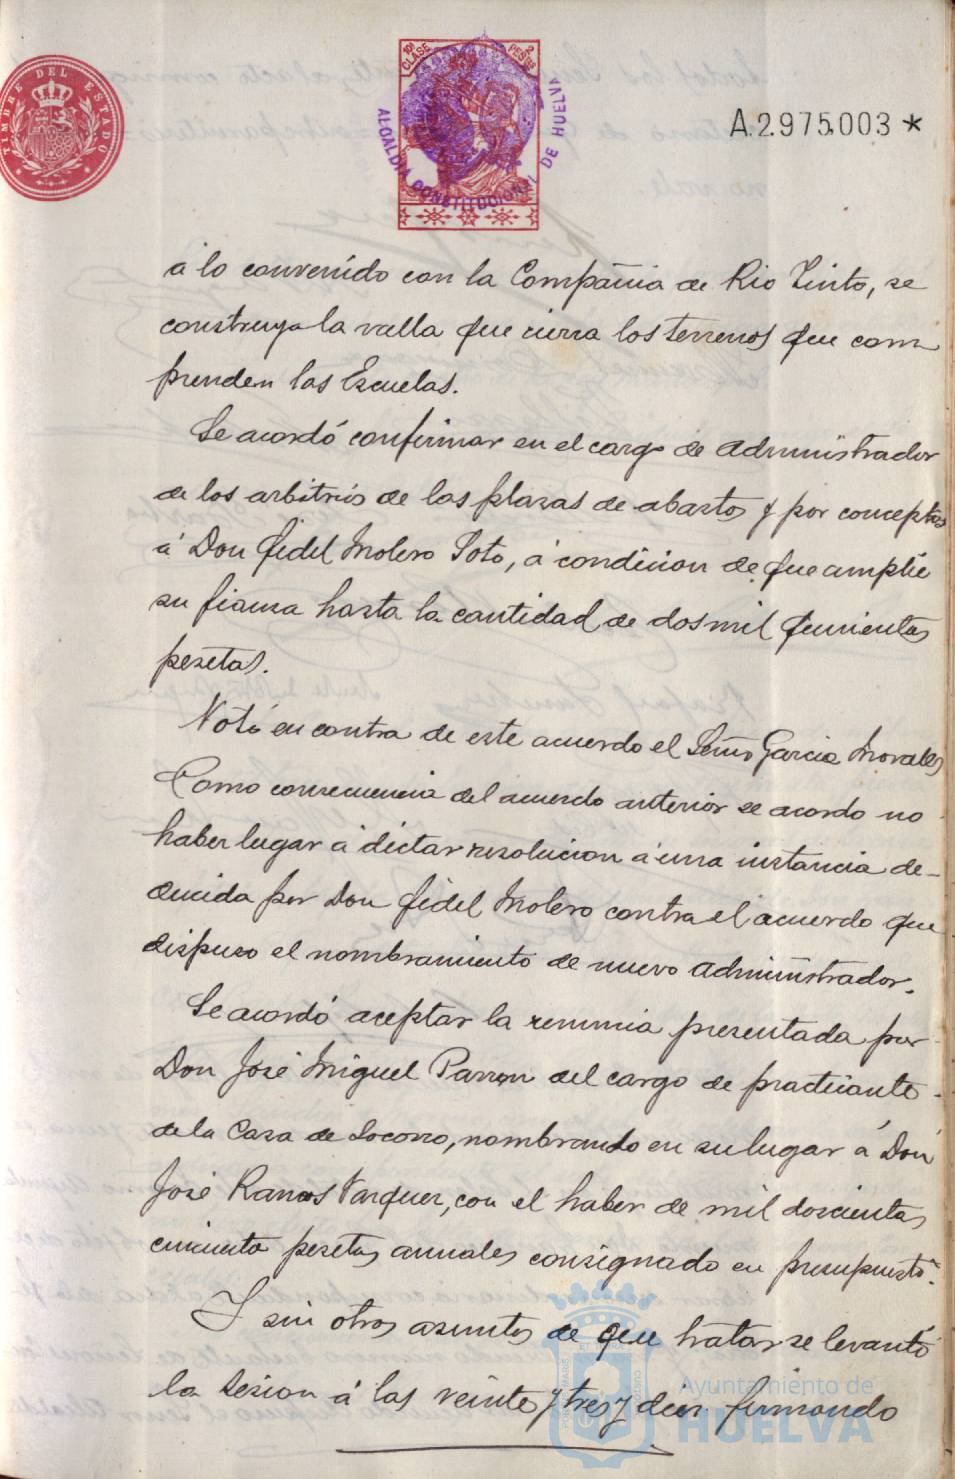 TIMBRE DEL ESTADO
10ª CLASE 2 PESETAS
ALCALDIA CONSTITUCIONAL DE HUELVA
A.2.975.003 *
á lo convenido con la Compañia de Rio Tinto, se
construya la valla que cierra los terrenos que com
prenden las Escuelas.
Se acordó confirmar en el cargo de Administrador
de los arbitrios de las plazas de abastos y por conceptos
á Don Fidel Molero Soto, á condicion de que amplíe
su fianza hasta la cantidad de dos mil quinientas
pesetas.
Votó en contra de este acuerdo el Señor Garcia Morales
Como consecuencia del acuerdo anterior se acordo no
haber lugar á dictar resolucion á una instancia de-
ducida por Don Fidel Molero contra el acuerdo que
dispuso el nombramiento de nuevo Administrador.
Se acordó aceptar la renuncia presentada por
Don José Miguel Parron del cargo de practicante
de la Casa de Socorro, nombrando en su lugar á Don
José Ramos Vazquez, con el haber de mil doscientas
cincuenta pesetas anuales consignado en presupuesto.
Y sin otros asuntos de que tratar se levantó
la sesion á las veinte y tres y diez firmando
Ayuntamiento de
HUELVA